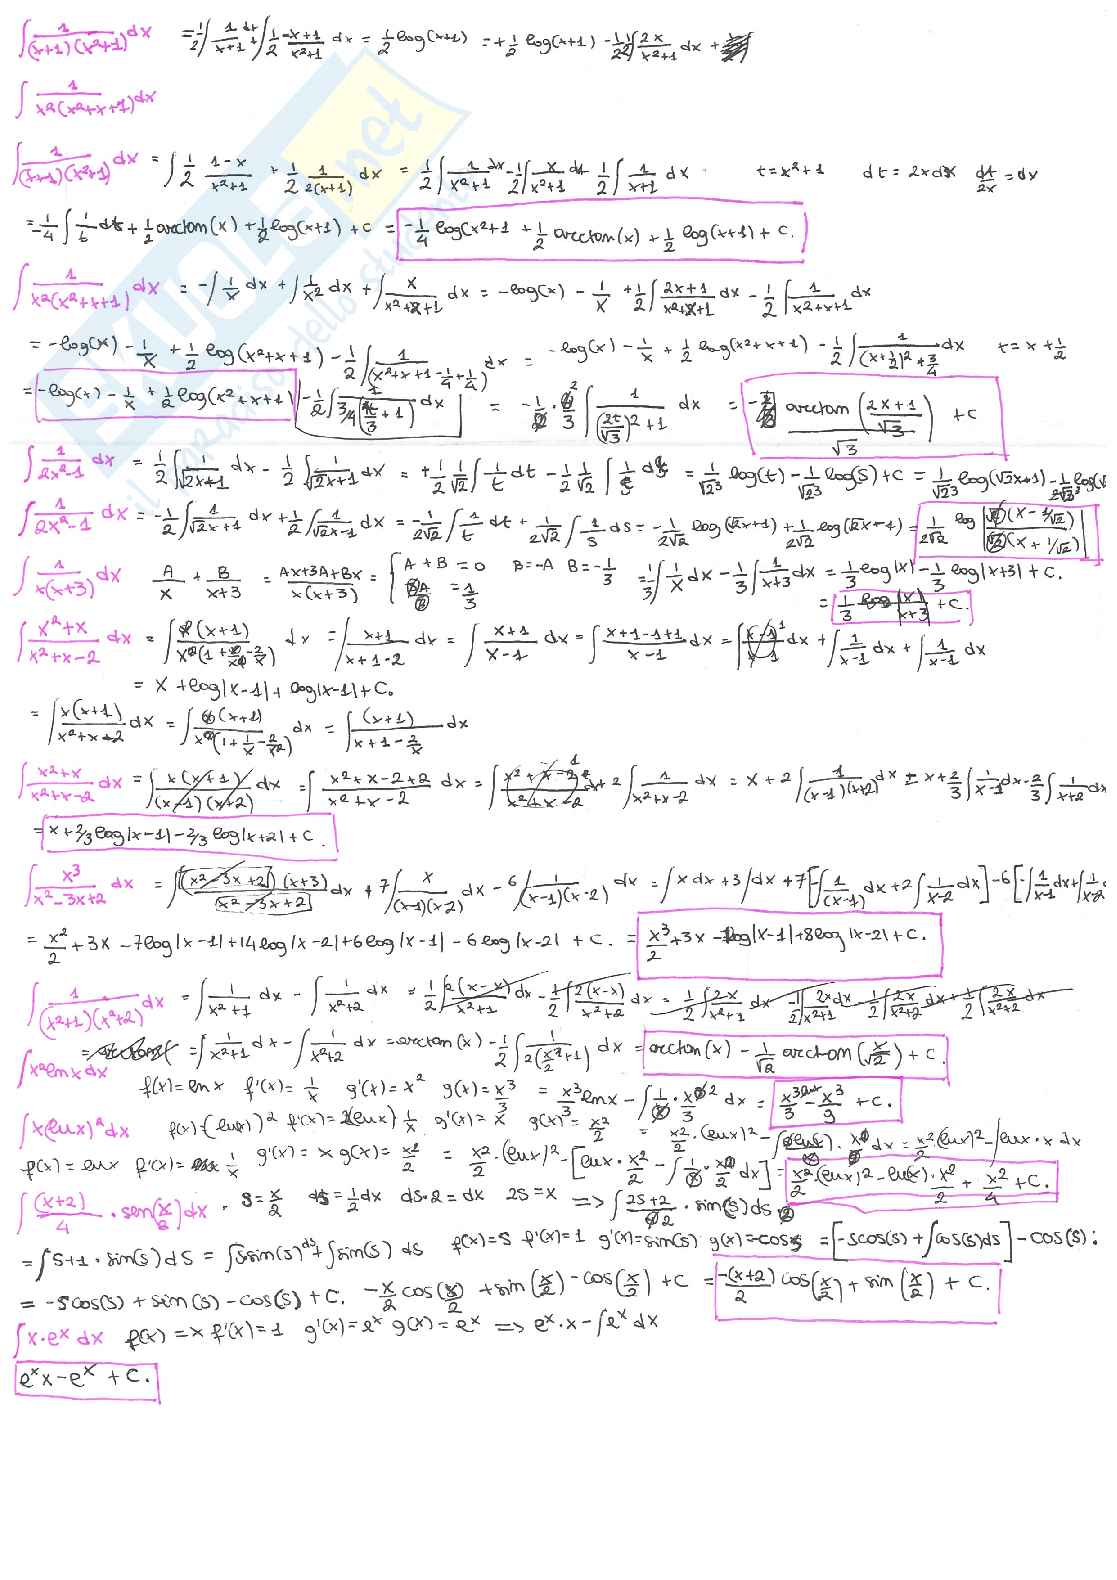 ∫ 1/((x+1)(x²+1)) dx = 1/2 ∫ 1/(x+1) dx + ∫ 1/2 (-x+1)/(x²+1) dx = 1/2 log(x+1) = + 1/2 log(x+1) - 1/2 1/2 ∫ 2x/(x²+1) dx +
∫ 1/(x²(x²+x+1)) dx
∫ 1/((x+1)(x²+1)) dx = ∫ 1/2 (1-x)/(x²+1) + 1/2 1/(2(x+1)) dx = 1/2 ∫ 1/(x²+1) dx - 1/2 ∫ x/(x²+1) dx 1/2 ∫ 1/(x+1) dx t = x²+1 dt = 2x dx dt/2x = dx
= -1/4 ∫ 1/t dt + 1/2 arctan(x) + 1/2 log(x+1) + c = -1/4 log(x²+1 + 1/2 arctan(x) + 1/2 log(x+1) + c.
∫ 1/(x²(x²+x+1)) dx = -∫ 1/x dx + ∫ 1/x² dx + ∫ x/(x²+x+1) dx = -log(x) - 1/x + 1/2 ∫ (2x+1)/(x²+x+1) dx - 1/2 ∫ 1/(x²+x+1) dx
= -log(x) - 1/x + 1/2 log(x²+x+1) - 1/2 ∫ 1/(x²+x+1-1/4+1/4) dx = -log(x) - 1/x + 1/2 log(x²+x+1) - 1/2 ∫ 1/((x+1/2)²+3/4) dx t = x + 1/2
= -log(x) - 1/x + 1/2 log(x²+x+1) - 1/2 ∫ 1/(3/4( /3 +1)) dx = -1/2 · /3 ∫ 1/((2t/√3)²+1) dx = - arctan((2x+1)/√3)/√3 + c
∫ 1/(2x²-1) dx = 1/2 ∫ 1/(√2x+1) dx - 1/2 ∫ 1/(√2x+1) dx = + 1/2 1/√2 ∫ 1/t dt - 1/2 1/√2 ∫ 1/s ds = 1/√2³ log(t) - 1/√2³ log(s) + c = 1/√2³ log(√2x+1) - 1/√2³ log(√
∫ 1/(2x²-1) dx = -1/2 ∫ 1/(√2x+1) dx + 1/2 ∫ 1/(√2x-1) dx = -1/(2√2) ∫ 1/t dt + 1/(2√2) ∫ 1/s ds = -1/(2√2) log(√2x+1) + 1/(2√2) log(√2x-1) = 1/(2√2) log |√2(x-1/√2)/√2(x+1/√2)|
∫ 1/(x(x+3)) dx A/x + B/(x+3) = (Ax+3A+Bx)/(x(x+3)) = { A+B = 0 B=-A B=-1/3 A = 1/3 = 1/3 ∫ 1/x dx - 1/3 ∫ 1/(x+3) dx = 1/3 log|x| - 1/3 log|x+3| + c.
= 1/3 log |x/(x+3)| + c.
∫ (x²+x)/(x²+x-2) dx = ∫ (x+1)/(x²(1+ -2/x)) dx = ∫ (x+1)/(x+1-2) dx = ∫ (x+1)/(x-1) dx = ∫ (x+1-1+1)/(x-1) dx = ∫ (x-1)/(x-1) dx + ∫ 1/(x-1) dx + ∫ 1/(x-1) dx
= x + log|x-1| + log|x-1| + c.
= ∫ x(x+1)/(x²+x+2) dx = ∫ (x+1)/(x²(1+1/x-2/x²)) dx = ∫ (x+1)/(x+1-2/x) dx
∫ (x²+x)/(x²+x-2) dx = ∫ x(x+1)/((x-1)(x+2)) dx = ∫ (x²+x-2+2)/(x²+x-2) dx = ∫ (x²+x-2)/(x²+x-2) dx + 2 ∫ 1/(x²+x-2) dx = x + 2 ∫ 1/((x-1)(x+2)) dx = x + 2/3 ∫ 1/(x-1) dx - 2/3 ∫ 1/(x+2) dx
= x + 2/3 log|x-1| - 2/3 log|x+2| + c.
∫ x³/(x²-3x+2) dx = ∫ (x²-3x+2)(x+3)/(x²-3x+2) dx + 7 ∫ x/((x-1)(x-2)) dx - 6 ∫ 1/((x-1)(x-2)) dx = ∫ x dx + 3 ∫ dx + 7[-∫ 1/(x-1) dx + 2 ∫ 1/(x-2) dx] - 6[-∫ 1/(x-1) dx + ∫ 1/(x-2)
= x²/2 + 3x - 7log|x-1| + 14log|x-2| + 6log|x-1| - 6log|x-2| + c. = x³/2 + 3x - log|x-1| + 8log|x-2| + c.
∫ 1/((x²+1)(x²+2)) dx = ∫ 1/(x²+1) dx - ∫ 1/(x²+2) dx = 1/2 ∫ 2(x-x)/(x²+1) dx - 1/2 ∫ 2(x-x)/(x²+2) dx = 1/2 ∫ 2x/(x²+1) dx - 1/2 ∫ 2x dx/(x²+1) - 1/2 ∫ 2x/(x²+2) dx + 1/2 ∫ 2x/(x²+2) dx
= ∫ 1/(x²+1) dx - ∫ 1/(x²+2) dx = arctan(x) - 1/2 ∫ 1/(2(x²/2+1)) dx = arctan(x) - 1/√2 arctan(x/√2) + c.
∫ x² ln x dx f(x) = ln x f'(x) = 1/x g'(x) = x² g(x) = x³/3 = x³/3 ln x - ∫ 1/x · x³/3 dx = x³ ln x/3 - x³/9 + c.
∫ x(ln x)² dx f(x) = (ln x)² f'(x) = 2(ln x) 1/x g'(x) = x g(x) = x²/2 = x²/2 · (ln x)² - ∫ dx = x²/2 (ln x)² - ∫ ln x · x dx
f(x) = ln x f'(x) = 1/x g'(x) = x g(x) = x²/2 = x²/2 · (ln x)² - [ln x · x²/2 - ∫ 1/x · x²/2 dx] = x²/2 (ln x)² - ln(x) · x²/2 + x²/4 + c.
∫ (x+2)/4 · sen(x/2) dx . s = x/2 ds = 1/2 dx ds·2 = dx 2s = x => ∫ (2s+2)/2 · sin(s) ds
= ∫ s+1 · sin(s) ds = ∫ s sin(s) ds + ∫ sin(s) ds f(x) = s f'(x) = 1 g'(x) = sin(s) g(x) = -cos s = [-s cos(s) + ∫ cos(s) ds] - cos(s):
= -s cos(s) + sin(s) - cos(s) + c. -x/2 cos(x/2) + sin(x/2) - cos(x/2) + c = -(x+2)/2 cos(x/2) + sin(x/2) + c.
∫ x·eˣ dx f(x) = x f'(x) = 1 g'(x) = eˣ g(x) = eˣ => eˣ·x - ∫ eˣ dx
eˣx - eˣ + c.